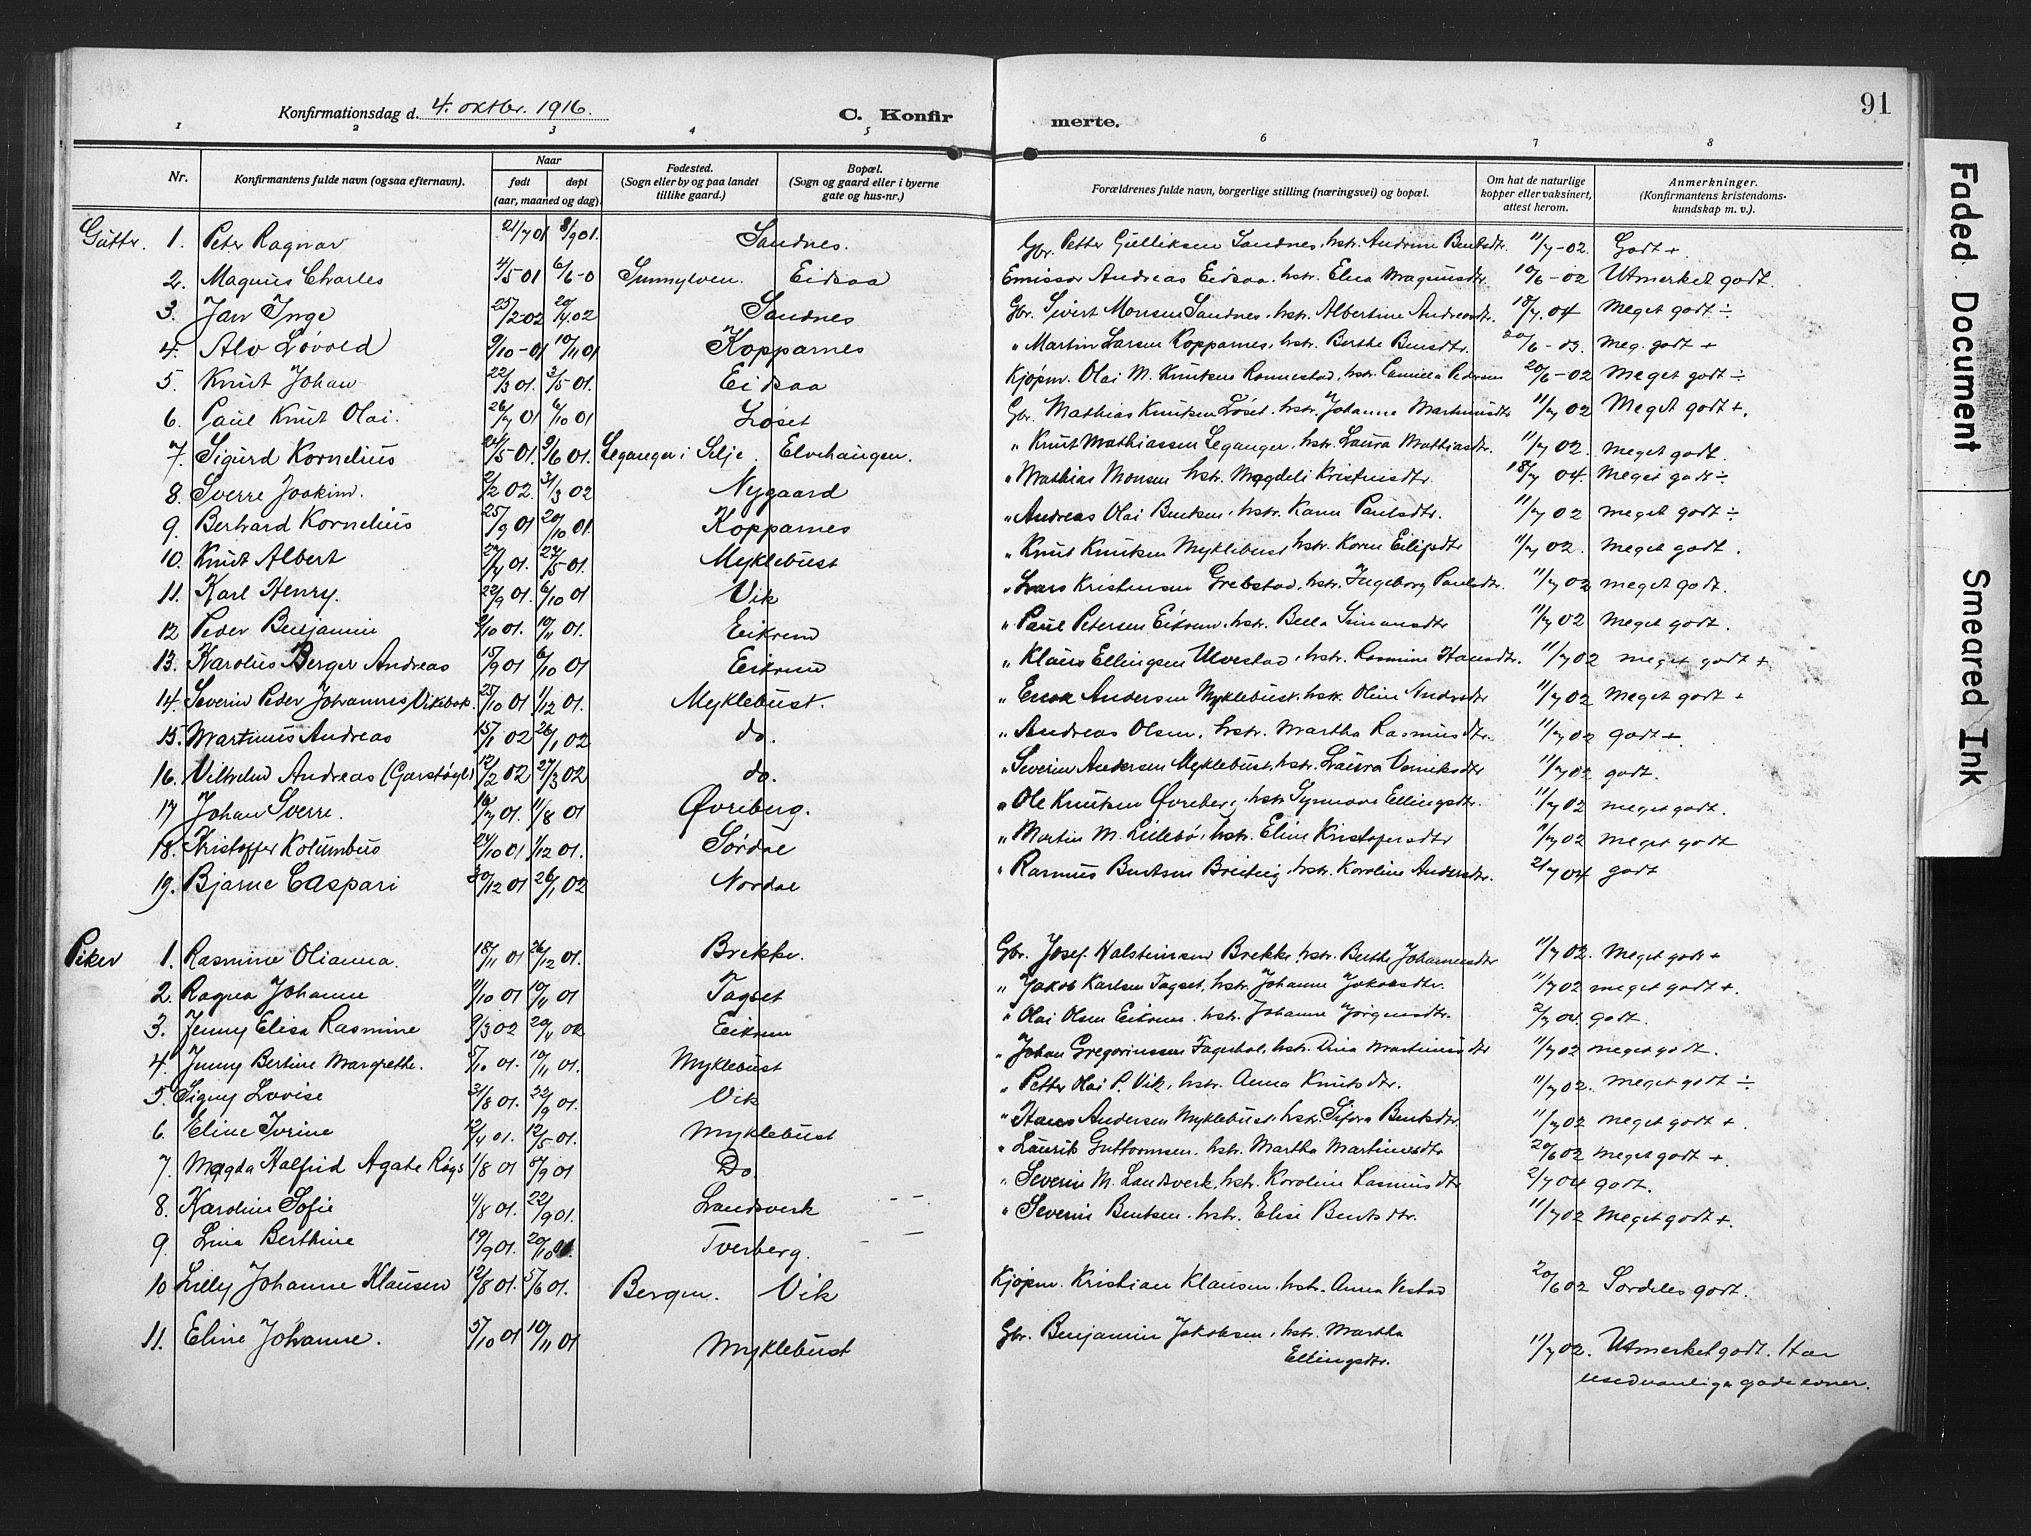 91
Konfirmationsdag d. 4. oktbr. 1916. C. Konfirmerte.
1 2 3 4 5 6 7 8
Nr. Konfirmantens fulde navn (ogsaa efternavn). Naar født døpt (aar, maaned og dag). Fødested. (Sogn eller by og paa landet tillike gaard.) Bopæl. (Sogn og gaard eller i byerne gate og hus-nr.) Forældrenes fulde navn, borgerlige stilling (næringsvei) og bopæl. Om hat de naturlige kopper eller vaksinert, attest herom. Anmerkninger. (Konfirmantens kristendomskundskap m. v.).
Gutter. 1. Peter Ragnar 21/7 01 8/9 01. Sandnes. Gbr. Petter Gulliksen Sandnes, hstr. Andrine Bentsdtr. 11/7-02 Godt +
2. Magnus Charles 4/5-01 6/6-0 Sunnylven. Eidsaa Emissær Andreas Eidsaa, hstr. Elna Magnusdtr. 10/6-02 Utmerket godt.
3. Jan Inge 25/2-02 20/4 02 Sandnes Gbr. Sivert Monsen Sandnes, hstr. Albertine Andreasdtr. 18/7 04 Meget godt ÷
4. Alv Løvold 9/10-01 10/11 01 Kopparnes " Martin Larsen Kopparnes, hstr. Berthe Bensdtr. 20/6-03. Meg. godt +
5. Knut Johan 22/3 01. 3/5 01. Eidsaa Kjøpm. Olai M. Knutsen Ronnestad, hstr. Camilla Pedersen 20/6-02 Meget godt ÷
6. Paul Knut Olai. 26/7 01 6/10 01 Løset Gbr. Mathias Knutsen Løset, hstr. Johanne Martinusdtr 11/7 02 Meget godt +.
7. Sigurd Kornelius 24/5 01. 9/6 01. Leganger i Selje. Elvehaugen. " Knut Mathiassen Leganger, hstr. Laura Mathiasdtr. 11/7 02. Meget godt.
8. Sverre Joakim. 2/2 02. 31/3 02 Nygaard " Mathias Monsen hstr. Magdeli Kristensdtr 18/7 04. Meget godt ÷
9. Berhard Kornelius 25/9 01 20/10 01. Kopparnes " Andreas Olai Bentsen, hstr. Karen Paulsdtr. 11/7 02 Meget godt ÷
10. Knut Albert 24/4 01. 27/5 01. Myklebust " Knut Knutsen Myklebust hstr. Karen Eilifsdtr 11/7 02. Meget godt.
11. Karl Henry. 22/9 01. 6/10 01 Vik " Lars Kristensen Grebstad, hstr. Ingeborg Paulsdtr. 11/7 02 Meget godt.
12 Peder Benjamin 9/10 01. 10/11 01. Eikrem " Paul Petersen Eikrem, hstr. Bella Simonsdtr 11/7 02 Meget godt.
13. Karolus Berger Andreas 15/9 01 6/10 01 Eikrem " Klaus Ellingsen Ulvestad, hstr. Rasmine Hansdtr. 11/7 02 meget godt +
14. Severin Peder Johannes Vikebak. 25/10 01 1/12 01. Myklebust. " Andersen Myklebust, hstr. Oline Andersdtr 11/7 02 Meget godt +
15. Martinus Andreas 15/1 02 26/1 02 do. " Andreas Olsen, hstr. Martha Rasmusdtr. 11/7 02 godt +.
16. Vilhelm Andreas (Garstøyl) 12/2 02 27/3 02 do. " Severin Andersen Myklebust, hstr. Laura 11/7 02 godt.
17 Johan Sverre. 16/7 01. 11/8 01 Øvreberg. " Ole Knutsen Øvreberg, hstr. Synnøve Ellingsdtr. 11/7 02 meget godt.
18. Kristoffer Kolumbus 24/10 01 1/12 01. Sørdal " Martin M. Lillebø, hstr. Eline Kristofersdtr 11/7 02 Meget godt
19. Bjarne Caspari 30/12 01 26/1 02 Nordal " Rasmus Bentsen Breiteig, hstr. Karoline Andersdtr. 21/7 04 godt
Piker 1. Rasmine Olianna. 18/11 01 26/12 01. Brekke. Gbr. Josef Halsteinsen Brekke, hstr. Berthe Johannesdtr 11/7 02. Meget godt +
2. Ragna Johanne 9/10 01 10/11 01 Tagset " Jakob Karlsen Tagset, hstr. Johanne Jakobsdtr. 11/7 02 meget godt +.
3. Jenny Elisa Rasmine 9/3 02 20/4 02 Eikrem " Olai Olsen Eikrem, hstr. Johanne Jørgensdtr. 2/7 04. godt.
4. Jenny Bertine Margrethe. 5/10 01. 10/11 01. Myklebust " Johan Gregoriussen Fagerhol, hstr. Dina Martinusdtr 11/7 02 Meget godt.
5. Signy Lovise 31/8 01. 22/9 01. Vik " Petter Olai P. Vik, hstr. Anna Knutsdtr. 11/7 02. Meget godt ÷
6. Eline Ivrine 12/4 01. 12/5 01. Myklebust " Hans Andersen Myklebust, hstr. Sifora Bentsdtr 11/7 02 Meget godt +.
7. Magda Halfrid Agate Røys 1/8 01 8/9 01 Do. " Laurits Guttormsen, hstr. Martha Martinusdtr 20/6 02 Meget godt +.
8. Karoline Sofie 4/8 01. 22/9 01. Landsverk " Severin M. Landsverk, hstr. Karoline Rasmusdtr 2/7 04 godt.
9. Lina Berthine 19/9 01. 20/10 01. Tverberg. " Severin Bentsen, hstr. Elise Bentsdtr. 11/7 02 Meget godt +.
10 Lilly Johanne Klausen 12/8 01. 5/6 01. Bergen. Vik Kjøpm. Kristian Klausen, hstr. Anna Vestad 20/6 02 Særdeles godt.
11. Eline Johanne. 5/10 01 10/11 01 Myklebust Gbr. Benjamin Jakobsen, hstr. Martha Ellingsdtr. 11/7 02. Utmerket godt. Har
usedvanlige gode evner.
Faded Document
Smeared Ink